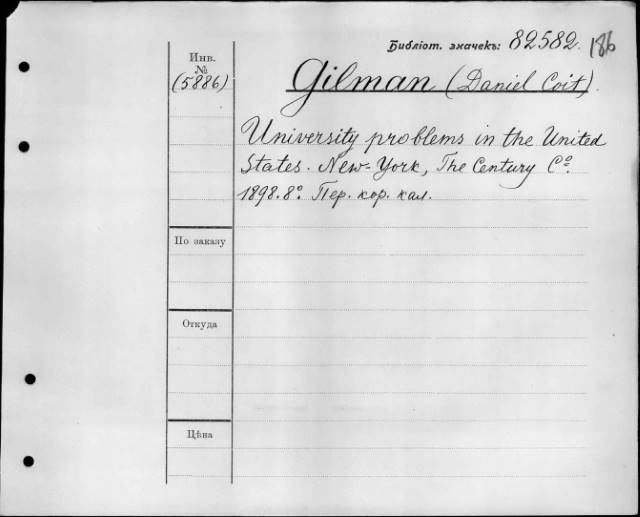 Библіот. значекъ: 82582. 186
Инв.
№
(5886)
Gilman (Daniel Coit).
University problems in the United
States. New-York, The Century Cº.
1898. 8º. Пер. кор. кал.
По заказу
Откуда
Цѣна